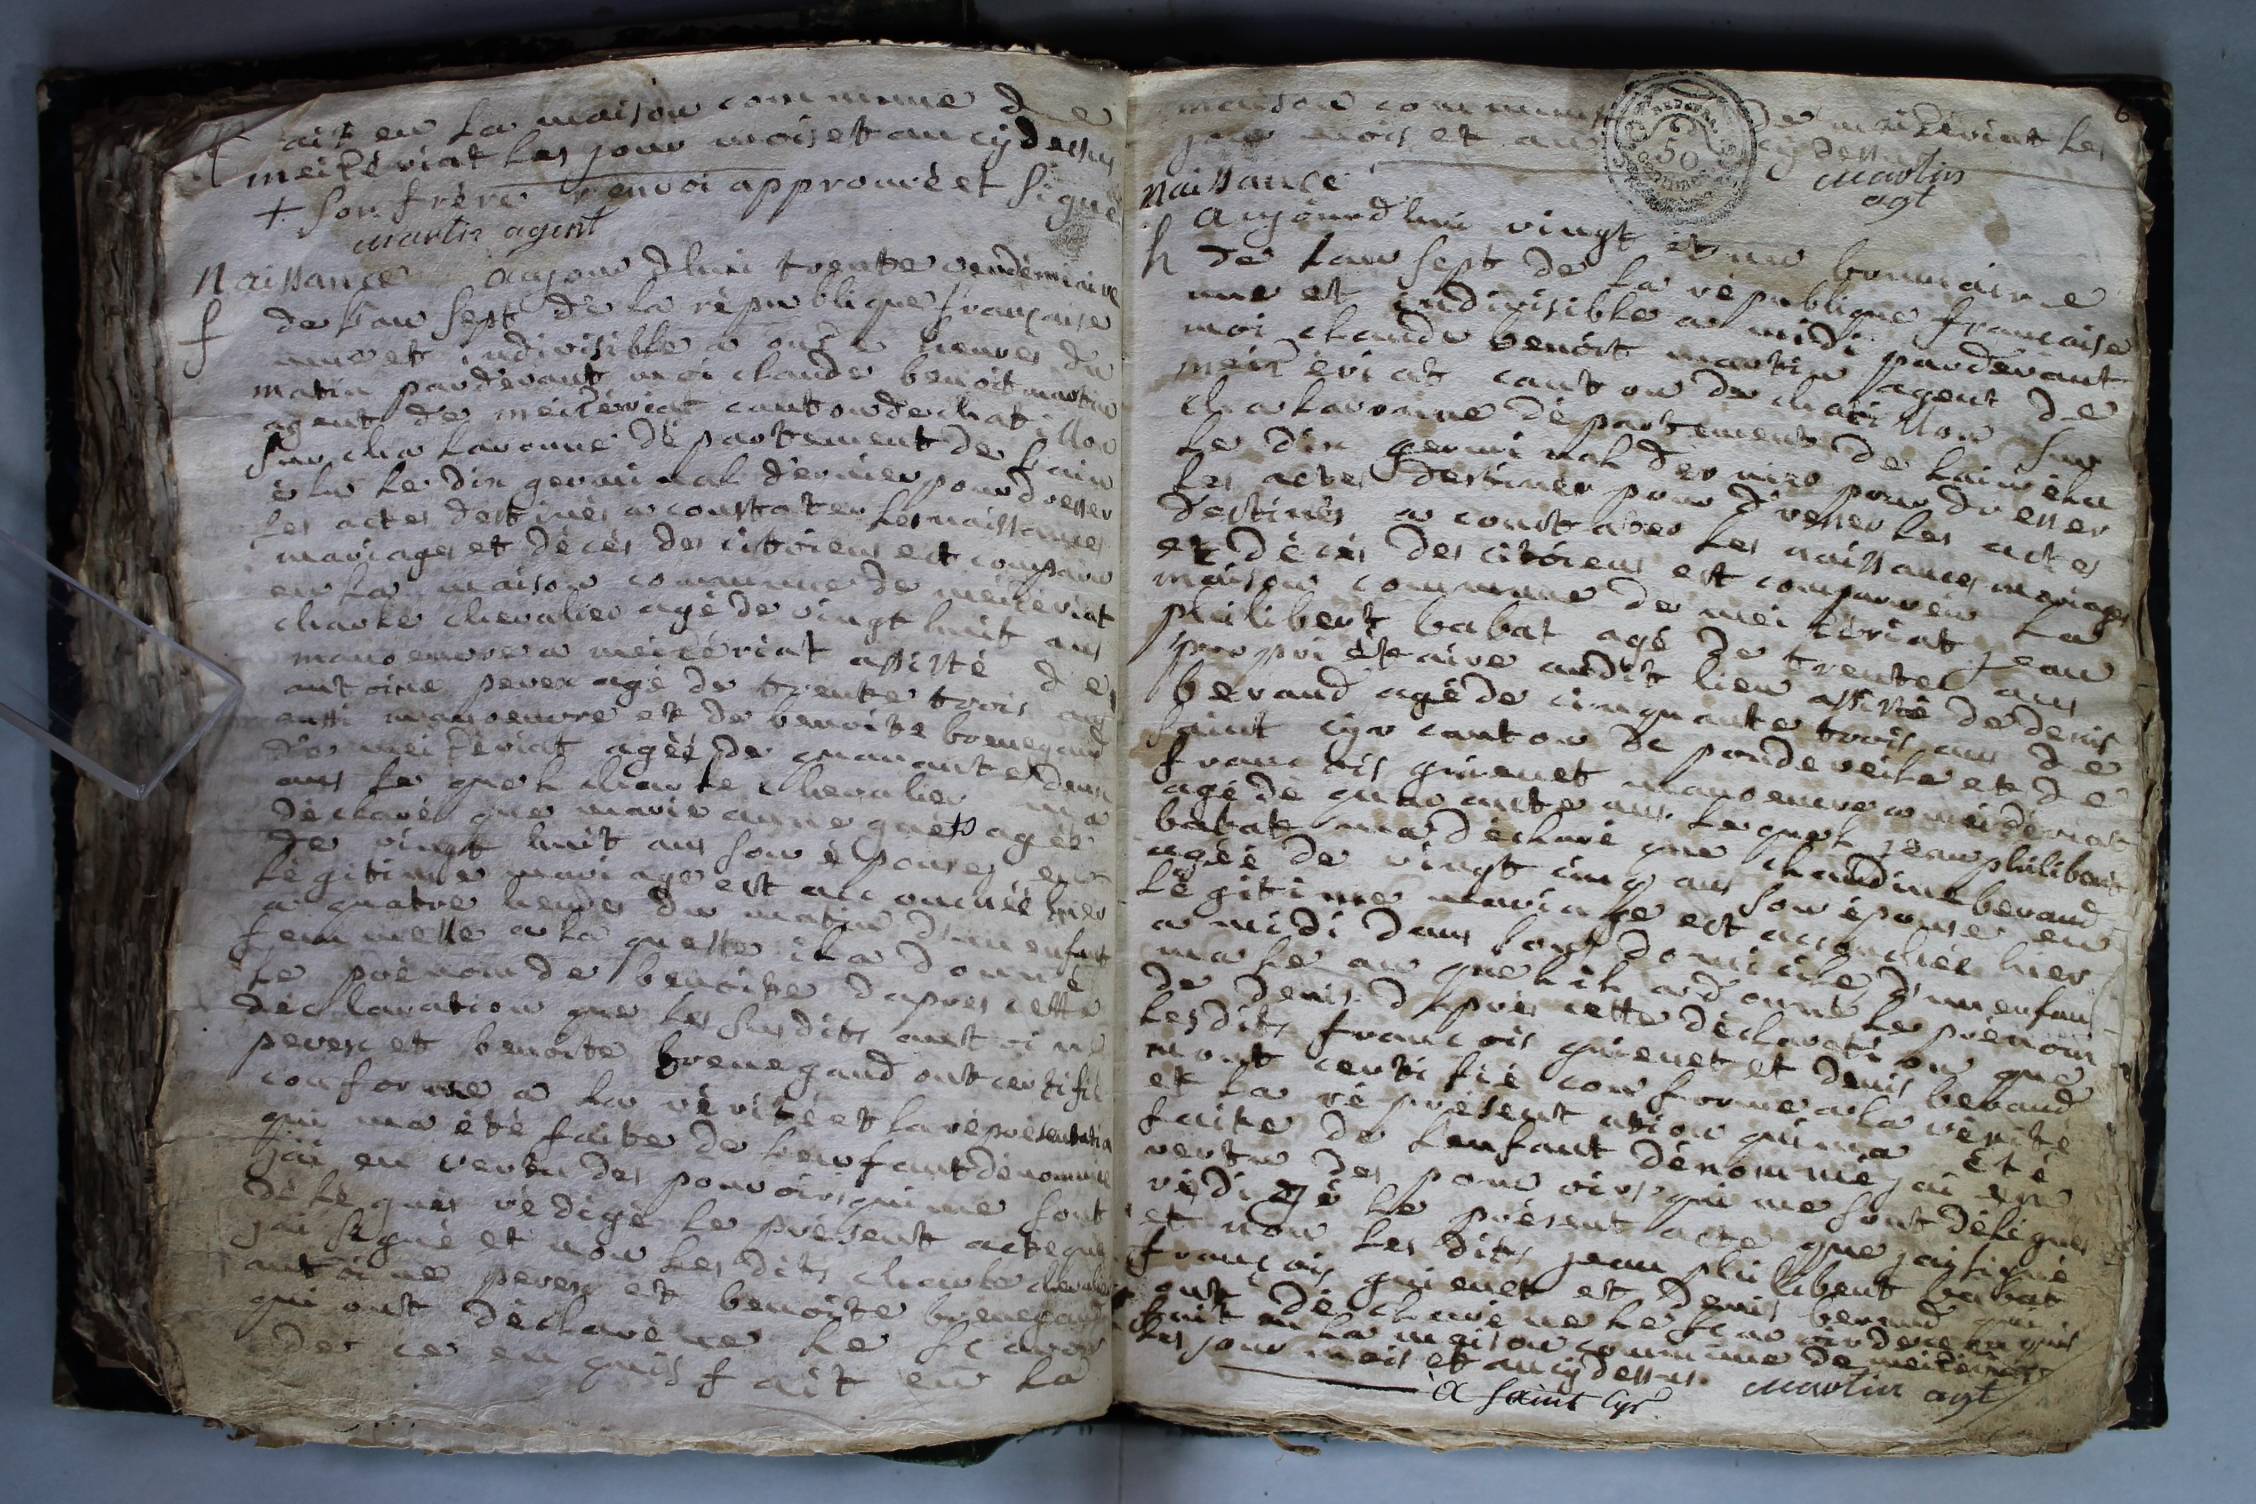 fait en la maison commune de
meizériat les jour mois et an cy dessus
+ son frère renvoi approuvé et signé
martin agent
Naissance aujourdhui trente vendémiaire
f de l'an sept de la république française
une et indivisible a onze heures du
matin pardevant moi claude benoit martin
agent de meizériat canton de chatillon
sur chalaronne département de lain
élu le dix germinal dernier pour dresser
les actes destinés a constater les naissances
mariages et décés des citoiens est comparu
en la maison commune de meizériat
charle chevalier agé de vingt huit ans
manoeuvre a meizériat assisté de
antoine perex agé de trente trois ans
aussi manoeuvre et de benoite brenegand
de meizériat agée de quarante deux
ans le quel charle chevalier m'a
déclaré que marie anne agée
de vingt huit ans son épouse en
légitime mariage est accouchée hier
a quatre heures du matin d'un enfant
femmelle a la quelle il a donné
le prénom de benoite d'apres cette
déclaration que les susdits antoine
perex et benoite brenegand ont certifié
conforme a la vérité et la représentation
qui ma été faite de lenfant dénommé
jai en vertu des pouvoirs qui me sont
délégués rédigé le présent acte que
jai signé et non les dits charle chevalier
antoine perex et benoite brenegand
qui ont déclaré ne le scavoir
de ce enquis fait en la
6
maison commune de meizériat les
jour mois et an cy dessus
martin
agt
50
centimes
naissance
aujourdhui vingt et un brumaire
h de lan sept de la république française
une et indivisible a midi pardevant
moi claude benoit martin agent de
meizériat canton de chatillon sur
chalaronne département de lain élu
le dix germinal dernier pour dresser
les actes destinés pour dresser les actes
destinés a constater les naissances mariages
et décés des citoiens est comparu en la
maison commune de meizériat jean
philibert babat agé de trente ans
propriétaire audit lieu assisté de denis
beraud agé de cinquante trois ans de
saint cyr canton de pondeveile et de
francois guienet manoeuvre a meizériat
agé de quarante ans. le quel jean philibert
babat ma déclaré que claudine beraud
agée de vingt cinq ans son épouse en
légitime mariage est accouchée hier
a midi dans son domicile d'un enfant
male au quel il a donné le prénom
de denis. d'aprés cette déclaration que
lesdits francois guienet et denis beraud
mont certifié conforme a la vérité
et la représentation qui ma été
faite de lenfant dénommé jai en
vertu des pouvoirs qui me sont délégués
rédigé le présent acte que jai signé
et non les dits jean philibert babat
françois guienet et denis beraud qui
ont déclaré ne le scavoir de ce enquis
fait en la maison commune de meizériat
les jour mois et an cy dessus. martin agt
a saint cyr